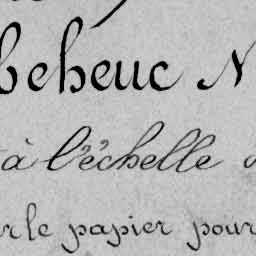 beheuc N
à l'échelle
le papier pour